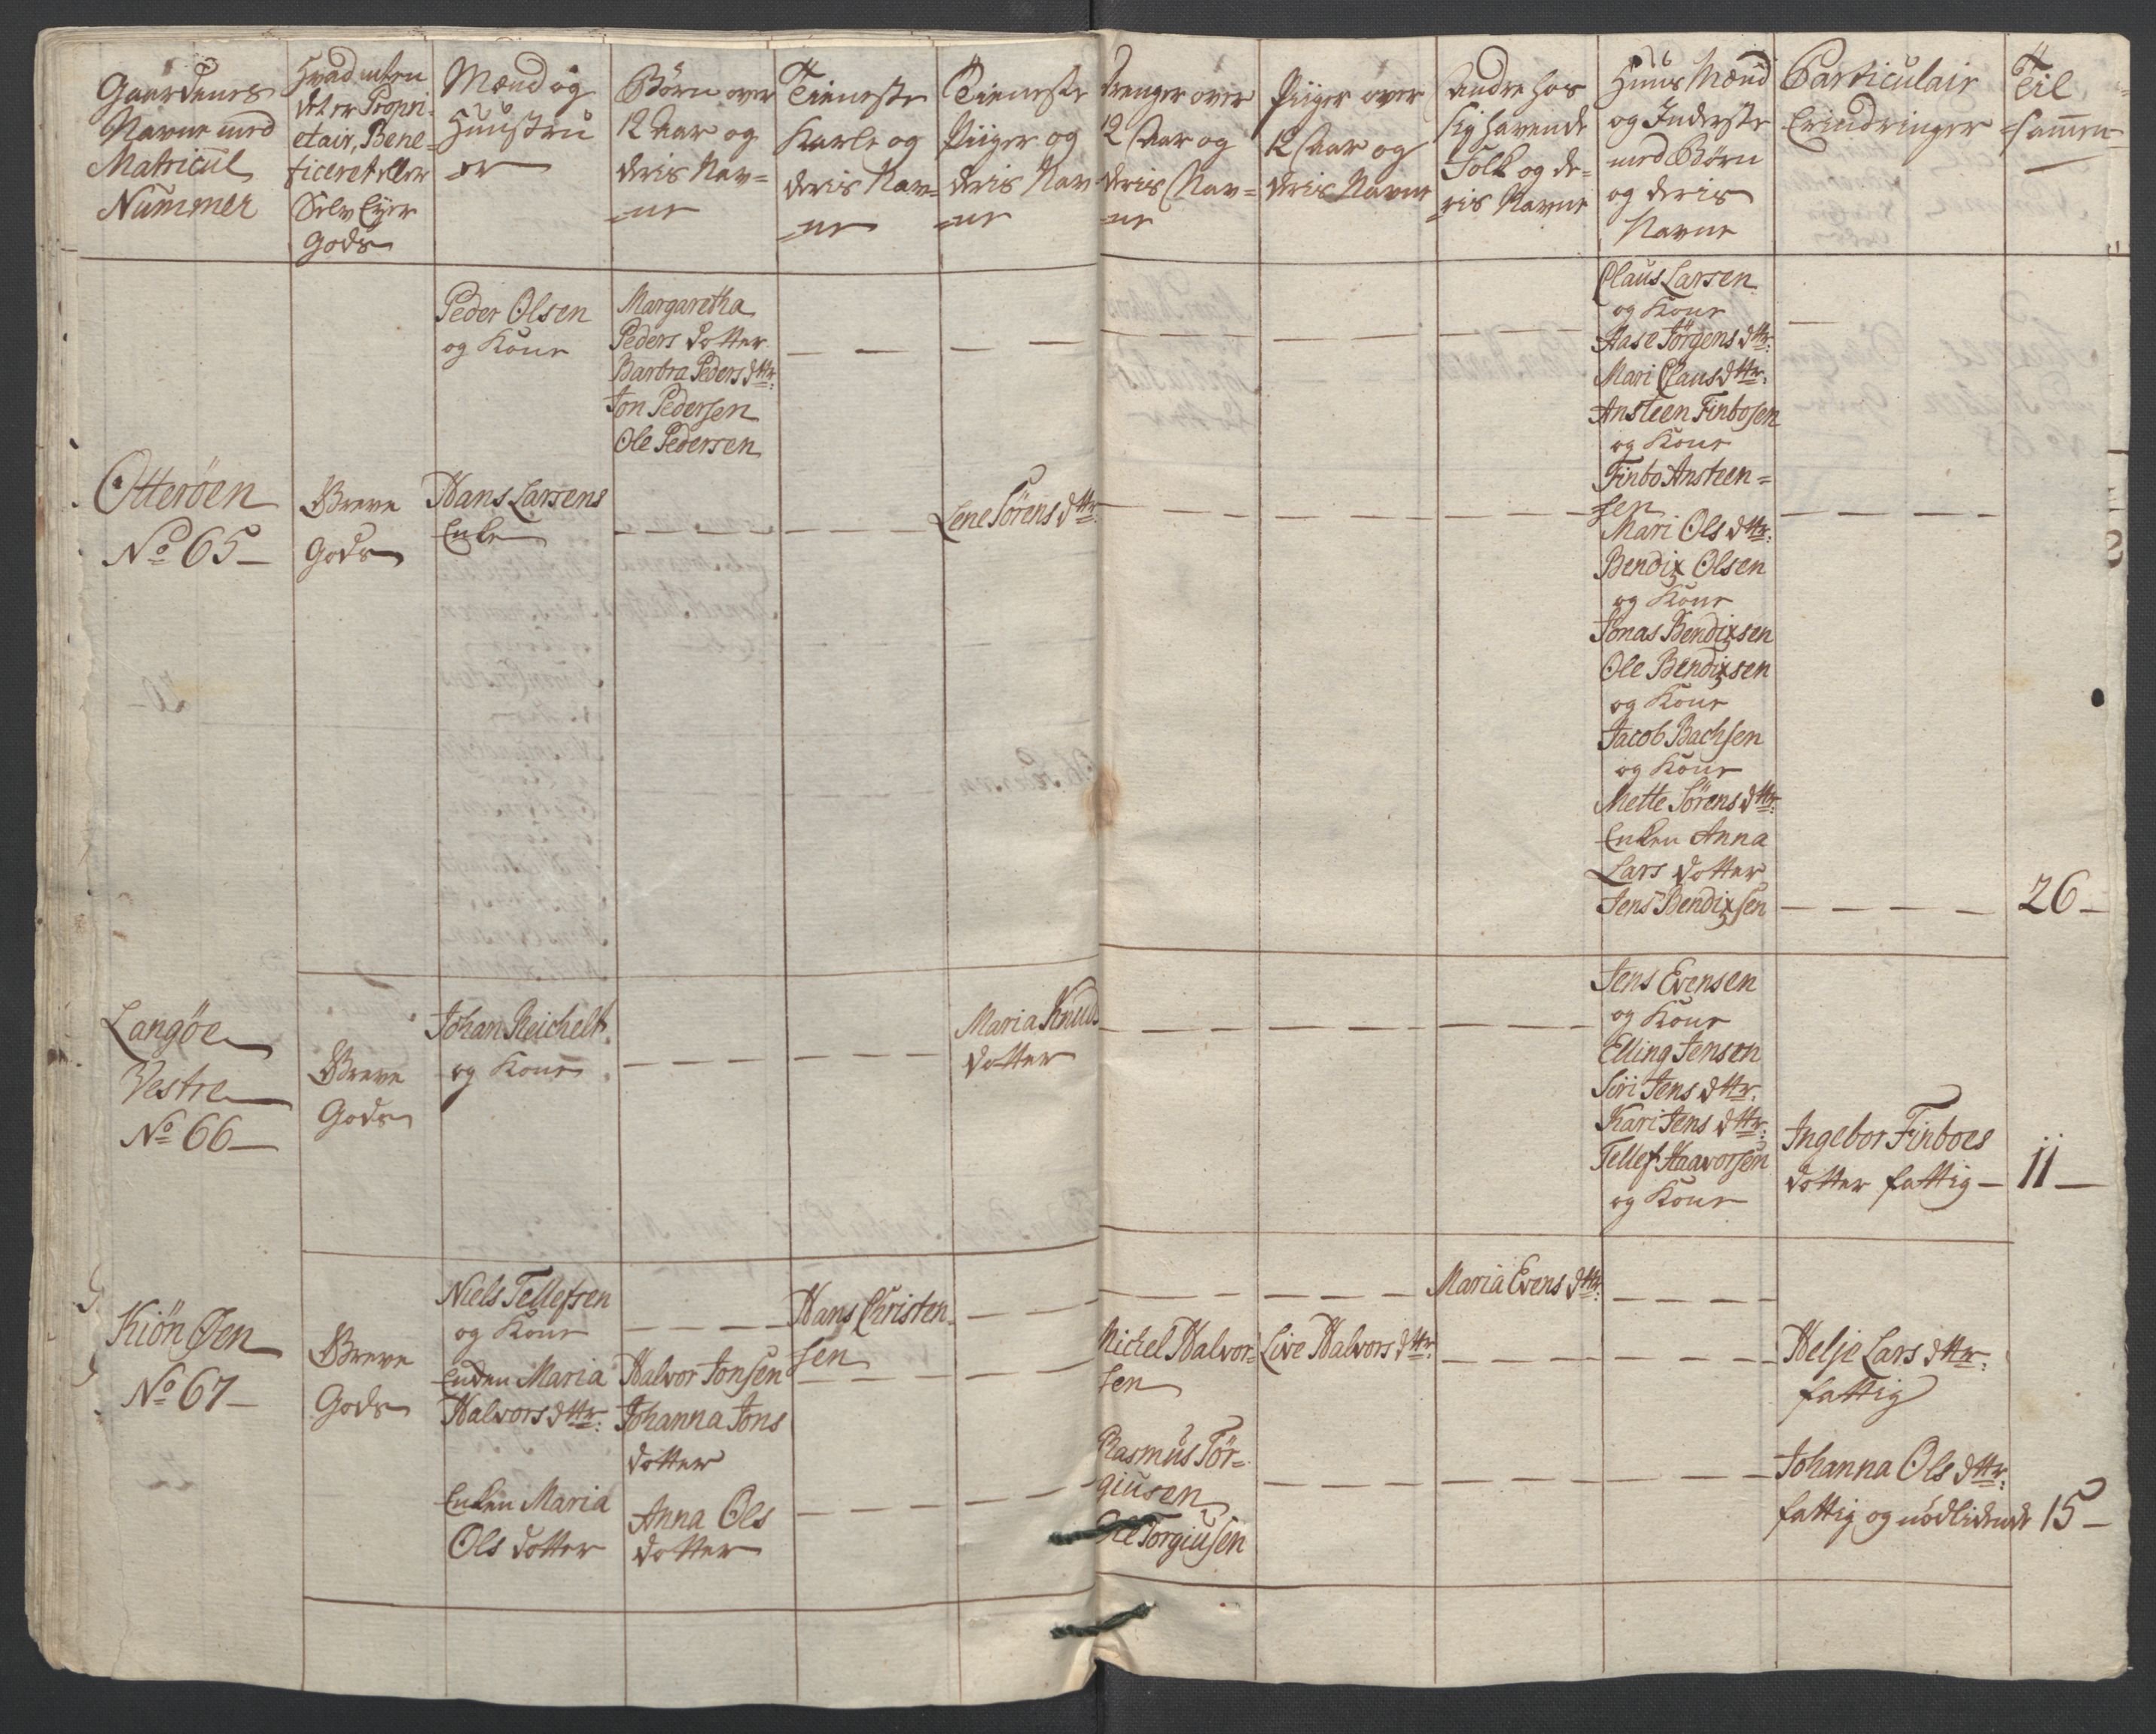 Gaardenes
Navne med
Matricul
Nummer
Hvad enten
det er Propri-
etair, Bene-
ficeret eller
Selv Eyer
Gods
Mænd og
Huustru
er
Børn over
12 Aar og
deris Nav=
=ne
Tieneste
Karle og
deris Nav=
=ne
Tieneste
Piiger og
deris Nav
=ne
Drenger over
12 Aar og
deris Nav=
=ne
Piiger over
12 Aar og
deris Navne
Andre hos
sig havende
Folk og de=
ris Navne
Huus Mænd
og Inderste
med Børn
og deris
Navne
Particulair
Erindringer
Til
=sammen=
Otterøen
No 65 –
Greve
Gods
Peder Olsen
og Kone
Hans Larsens
Enke
Margaretha
Peders dotter
Barbra Peders dttr:
Jon Pedersen
Ole Pedersen
Lene Sørens dttr:
Claus Larsen
og Kone
Aase Jørgens dttr:
Mari Claus dttr:
Ansteen Finbosen
og Kone
Finbo Ansteen=
sen
Mari Ols dttr:
Bendix Olsen
og Kone
Jonas Bendixsen
Ole Bendixsen
og Kone
Jacob Bachsen
og Kone
Mette Sørens dttr:
Enken Anna
Lars dotter
Jens Bendixsen
26 –
Langøe
Vestre
No 66 –
Greve
Gods
Johan Reichelt
og Kone
Maria Knuds
dotter
Jens Evensen
og Kone
Elling Jensen
Siri Jens dttr:
Kari Jens dttr:
Tellef Haavorsen
og Kone
Ingebor Finboes
dotter fattig –
11 –
Kiøn Øen
No 67 –
Greve
Gods
Niels Tellefsen
og Kone
Enken Maria
Halvors dttr:
Enken Maria
Ols dotter
Halvor Jonsen
Johanna Jons
dotter
Anna Ols
dotter
Hans Christen
sen
Michel Halvor=
sen
Rasmus Tør=
giusen
Ole Torgiusen
Live Halvors dttr:
Maria Evens dttr:
Helje Lars dttr:
fattig
Johanna Ols dttr:
fattig og nødlidende
15 –